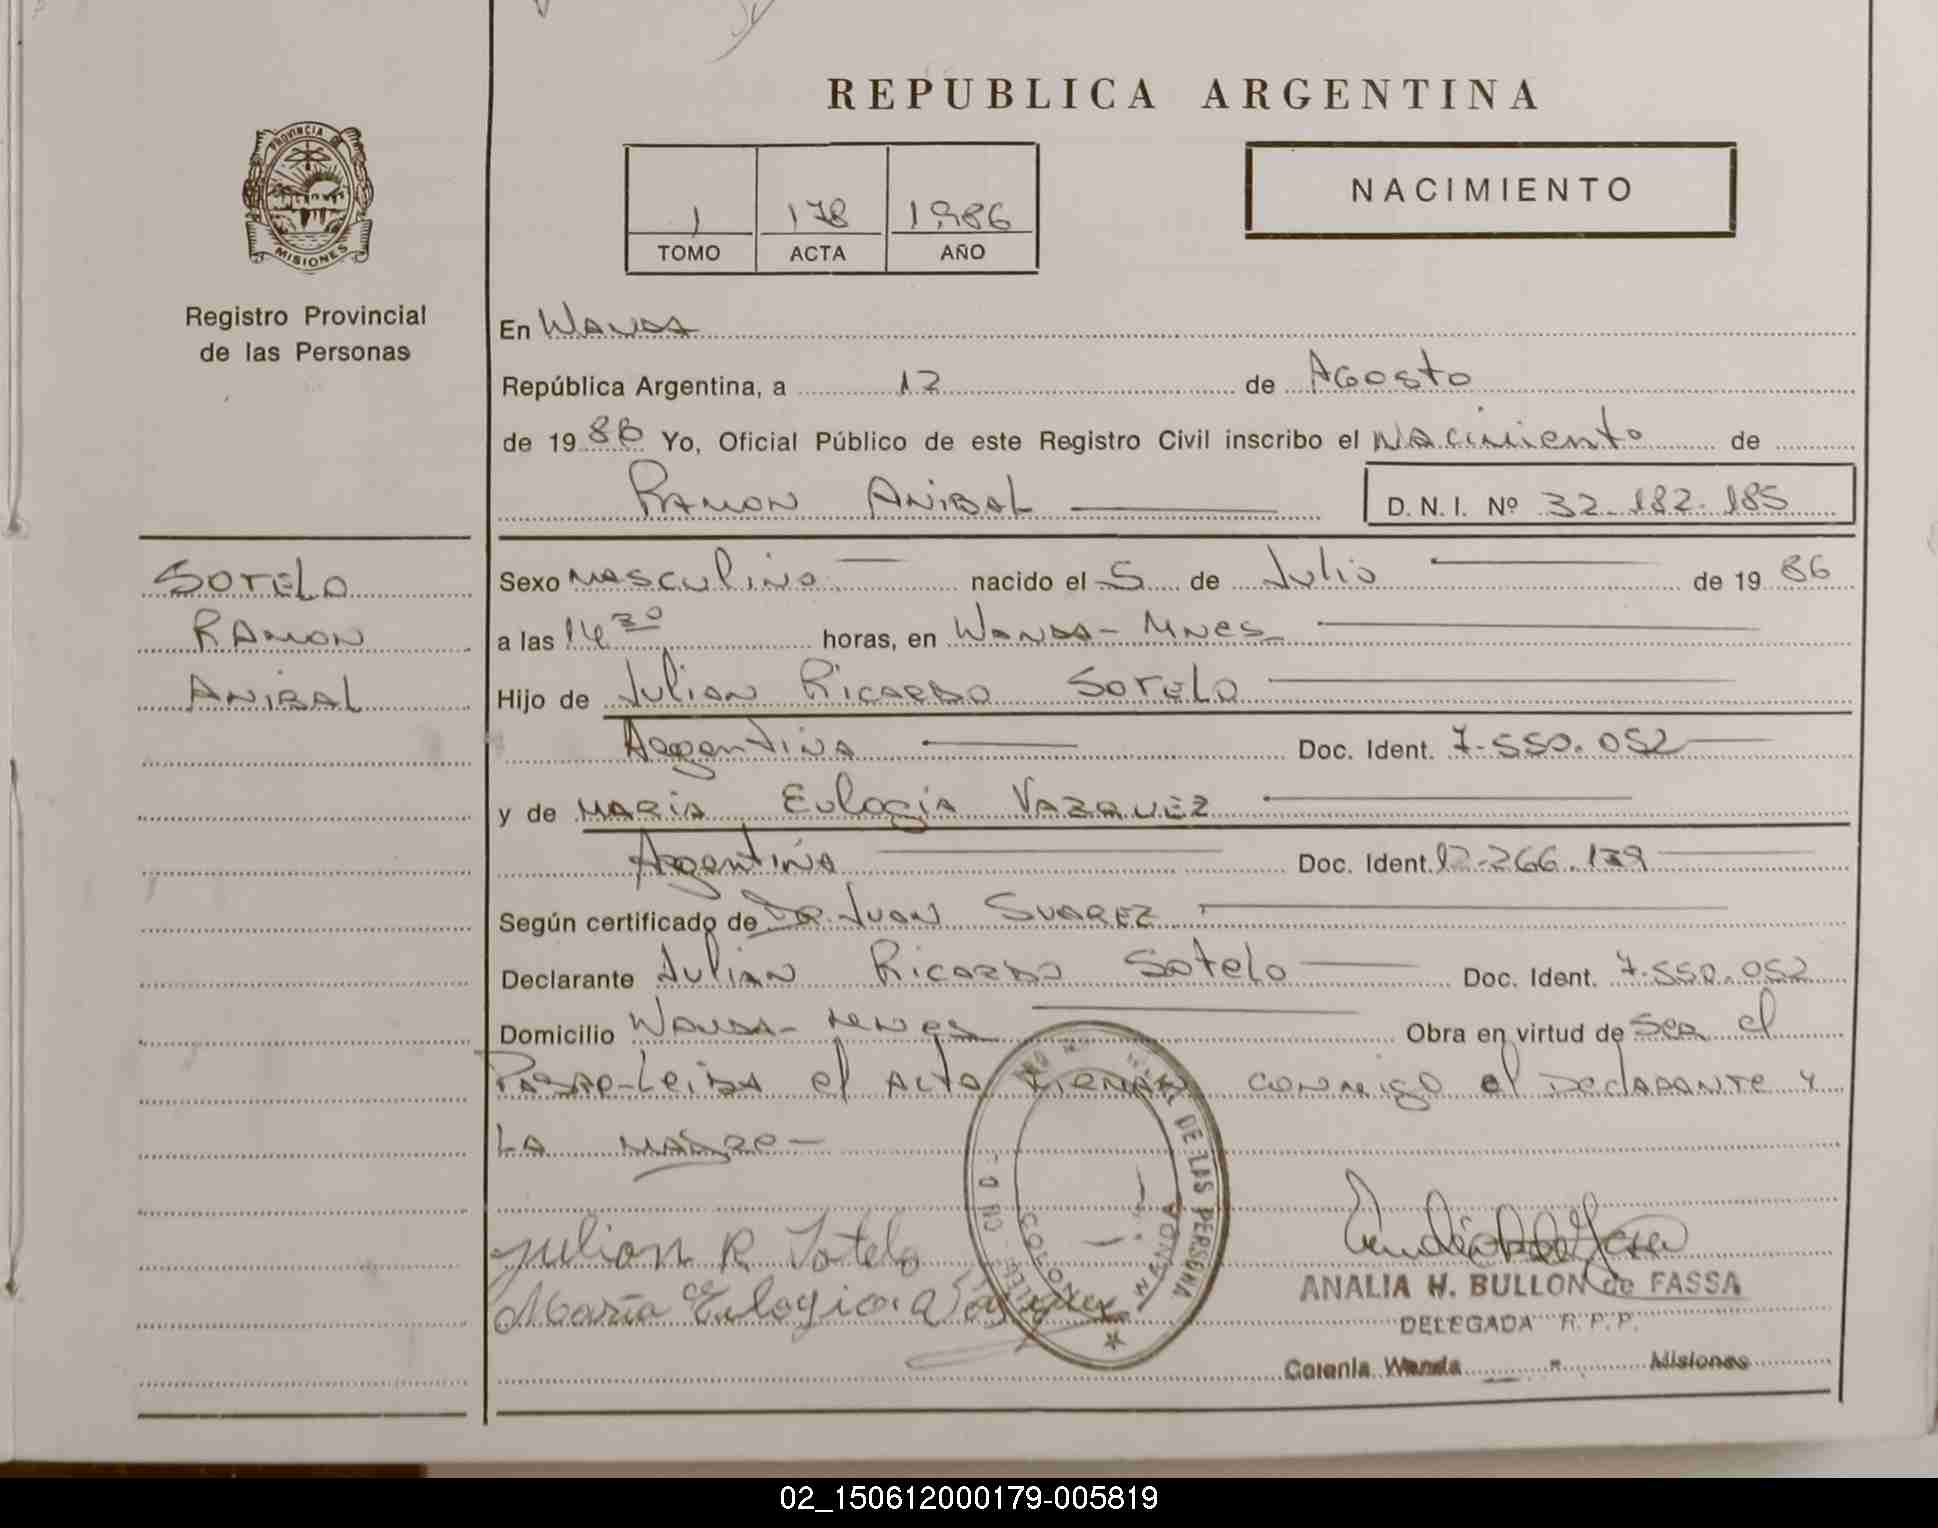 REPUBLICA ARGENTINA
PROVINCIA DE
MISIONES
Registro Provincial
de las Personas
1 178 1986
TOMO ACTA AÑO
NACIMIENTO
En Wanda
República Argentina, a 12 de Agosto
de 1986 Yo, Oficial Público de este Registro Civil inscribo el Nacimiento de
Ramon Anibal D. N. I. Nº 32.182.185
SOTELO
RAMON
ANIBAL
Sexo masculino nacido el 5 de Julio de 1986
a las 14 30 horas, en Wanda - Mnes
Hijo de Julian Ricardo Sotelo
Argentina Doc. Ident. 7.550.052
y de Maria Eulogia Vazquez
Argentina Doc. Ident. 12.266.139
Según certificado de Dr. Juan Suarez
Declarante Julian Ricardo Sotelo Doc. Ident. 7.550.052
Domicilio Wanda - Mnes Obra en virtud de ser el
Padre - Leida el Acta firman conmigo el Declarante y
La Madre -
DE LAS PERSONA
Julian R Sotelo
Maria Eulogia
ANALIA H. BULLON de FASSA
DELEGADA R. P. P.
Colonia Wanda - Misiones
02_150612000179-005819